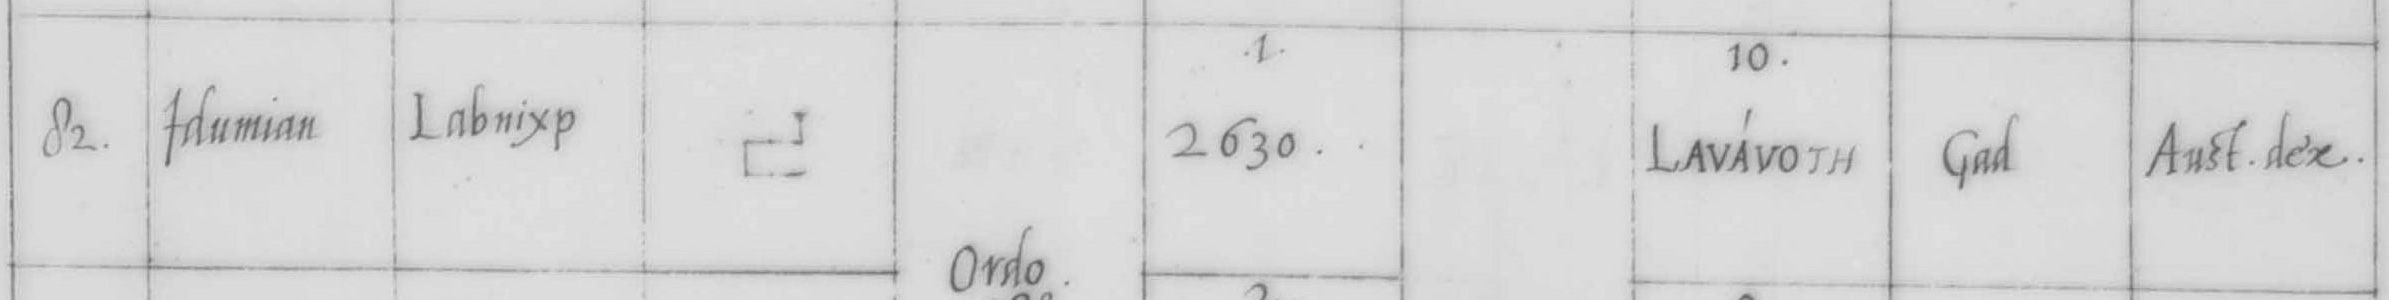 82. Idumian Labnixp 1. 2630. 10. LAVÁVOTH Gad Aust. dex.
Ordo.
2